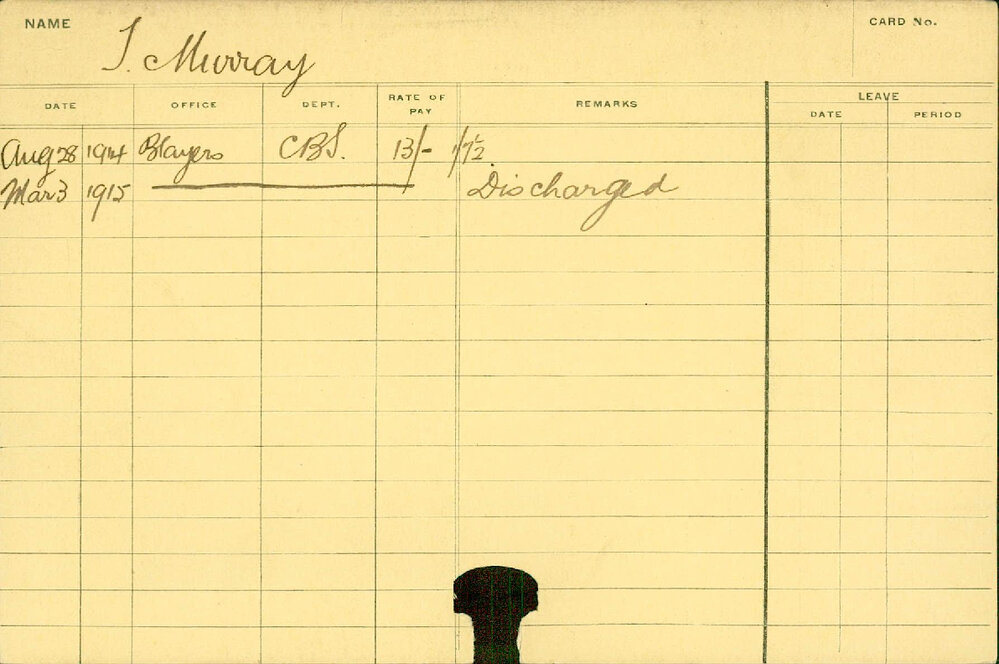 NAME
CARD No.
J. Murray
DATE OFFICE DEPT. RATE OF PAY REMARKS LEAVE
DATE PERIOD
Aug 28 1914 CBS. 13/- 1/7½
Mar 3 1915 Discharged